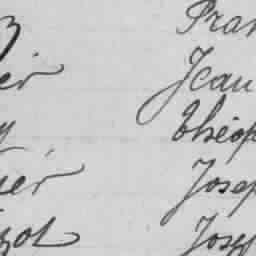 Fran
ier Jean
y Théop
ier Josep
zot Josep